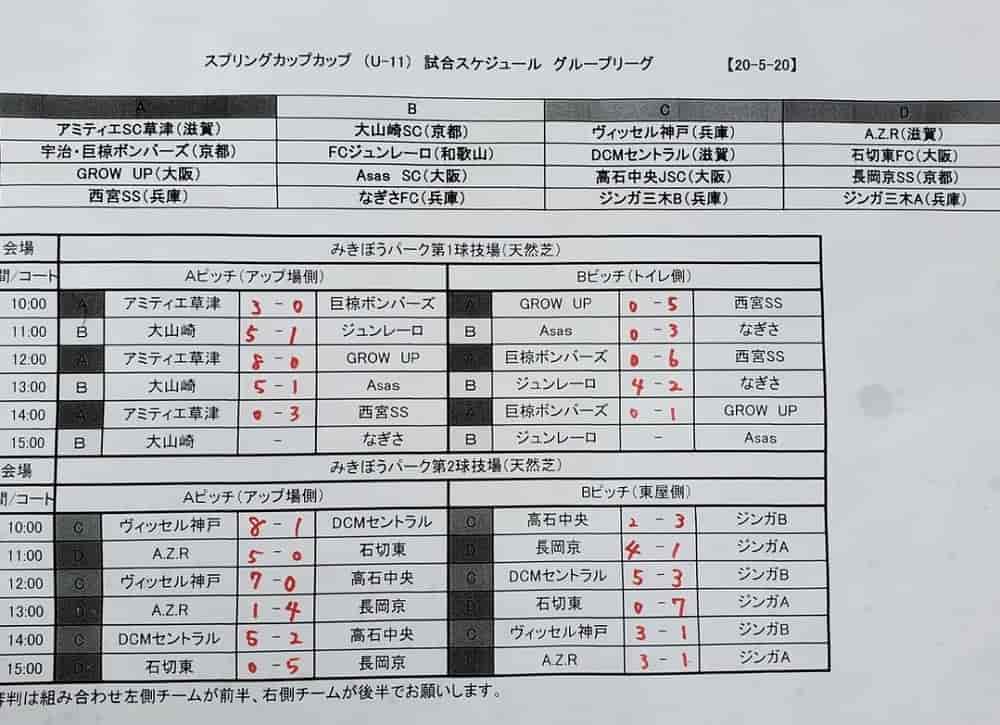 スプリングカップカップ （U-11） 試合スケジュール グループリーグ 【20-5-20】
A B C D
アミティエSC草津（滋賀） 大山崎SC（京都） ヴィッセル神戸（兵庫） A.Z.R（滋賀）
宇治・巨椋ボンバーズ（京都） FCジュンレーロ（和歌山） DCMセントラル（滋賀） 石切東FC（大阪）
GROW UP（大阪） Asas SC（大阪） 高石中央JSC（大阪） 長岡京SS（京都）
西宮SS（兵庫） なぎさFC（兵庫） ジンガ三木B（兵庫） ジンガ三木A（兵庫）
会場 みきぼうパーク第1球技場（天然芝）
間/コート Aピッチ（アップ場側） Bピッチ（トイレ側）
10:00 A アミティエ草津 3 - 0 巨椋ボンバーズ A GROW UP 0 - 5 西宮SS
11:00 B 大山崎 5 - 1 ジュンレーロ B Asas 0 - 3 なぎさ
12:00 A アミティエ草津 8 - 0 GROW UP A 巨椋ボンバーズ 0 - 6 西宮SS
13:00 B 大山崎 5 - 1 Asas B ジュンレーロ 4 - 2 なぎさ
14:00 A アミティエ草津 0 - 3 西宮SS A 巨椋ボンバーズ 0 - 1 GROW UP
15:00 B 大山崎 - なぎさ B ジュンレーロ - Asas
会場 みきぼうパーク第2球技場（天然芝）
間/コート Aピッチ（アップ場側） Bピッチ（東屋側）
10:00 C ヴィッセル神戸 8 - 1 DCMセントラル C 高石中央 2 - 3 ジンガB
11:00 D A.Z.R 5 - 0 石切東 D 長岡京 4 - 1 ジンガA
12:00 C ヴィッセル神戸 7 - 0 高石中央 C DCMセントラル 5 - 3 ジンガB
13:00 D A.Z.R 1 - 4 長岡京 D 石切東 0 - 7 ジンガA
14:00 C DCMセントラル 5 - 2 高石中央 C ヴィッセル神戸 3 - 1 ジンガB
15:00 D 石切東 0 - 5 長岡京 D A.Z.R 3 - 1 ジンガA
審判は組み合わせ左側チームが前半、右側チームが後半でお願いします。